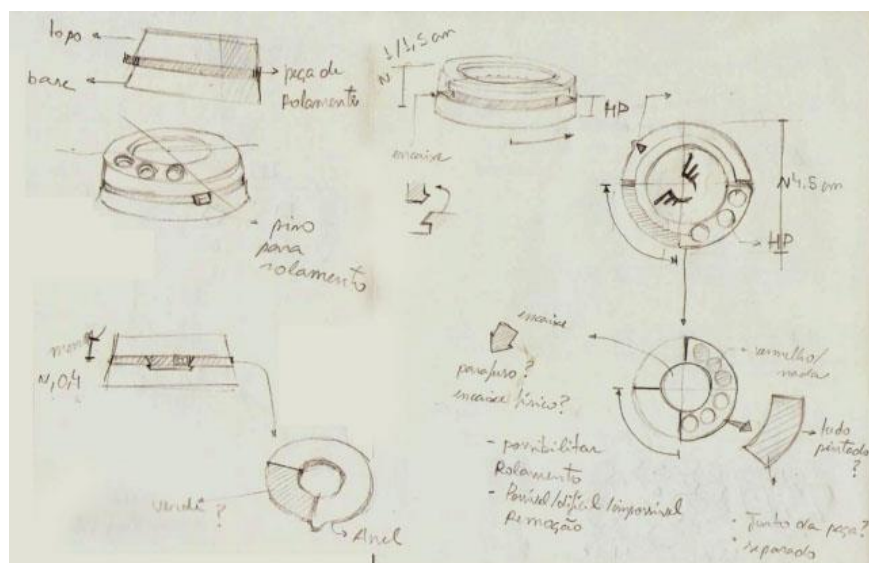 topo
base
peça de
Rolamento
pino
para
rolamento
1/1,5 cm
N
HP
encaixe
N 4.5 cm
HP
N
N 0,4
verde ?
Anel
encaixe
parafuso ?
encaixe físico?
- possibilitar
Rolamento
- Possível/difícil/impossível
Remoção
vermelho/
nada
tudo
pintado
?
- Junto da peça?
- separado